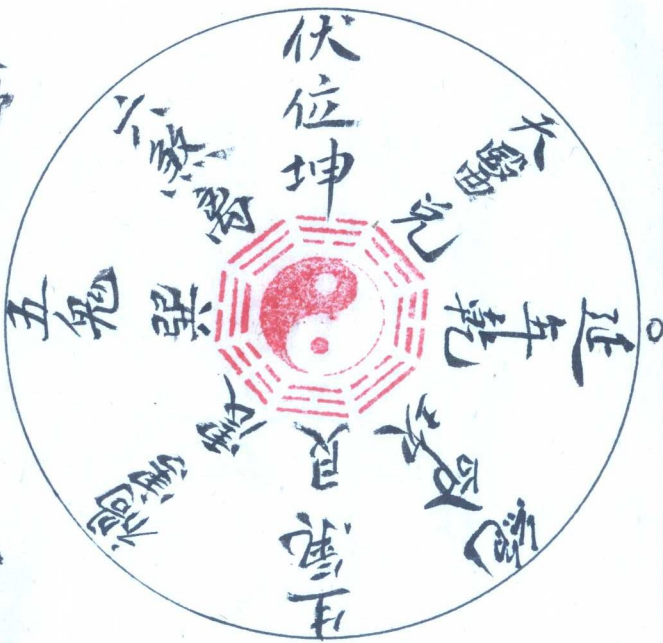 伏位坤
天醫兌
延年乾
絕命坎
生氣艮
禍害震
五鬼巽
六煞离